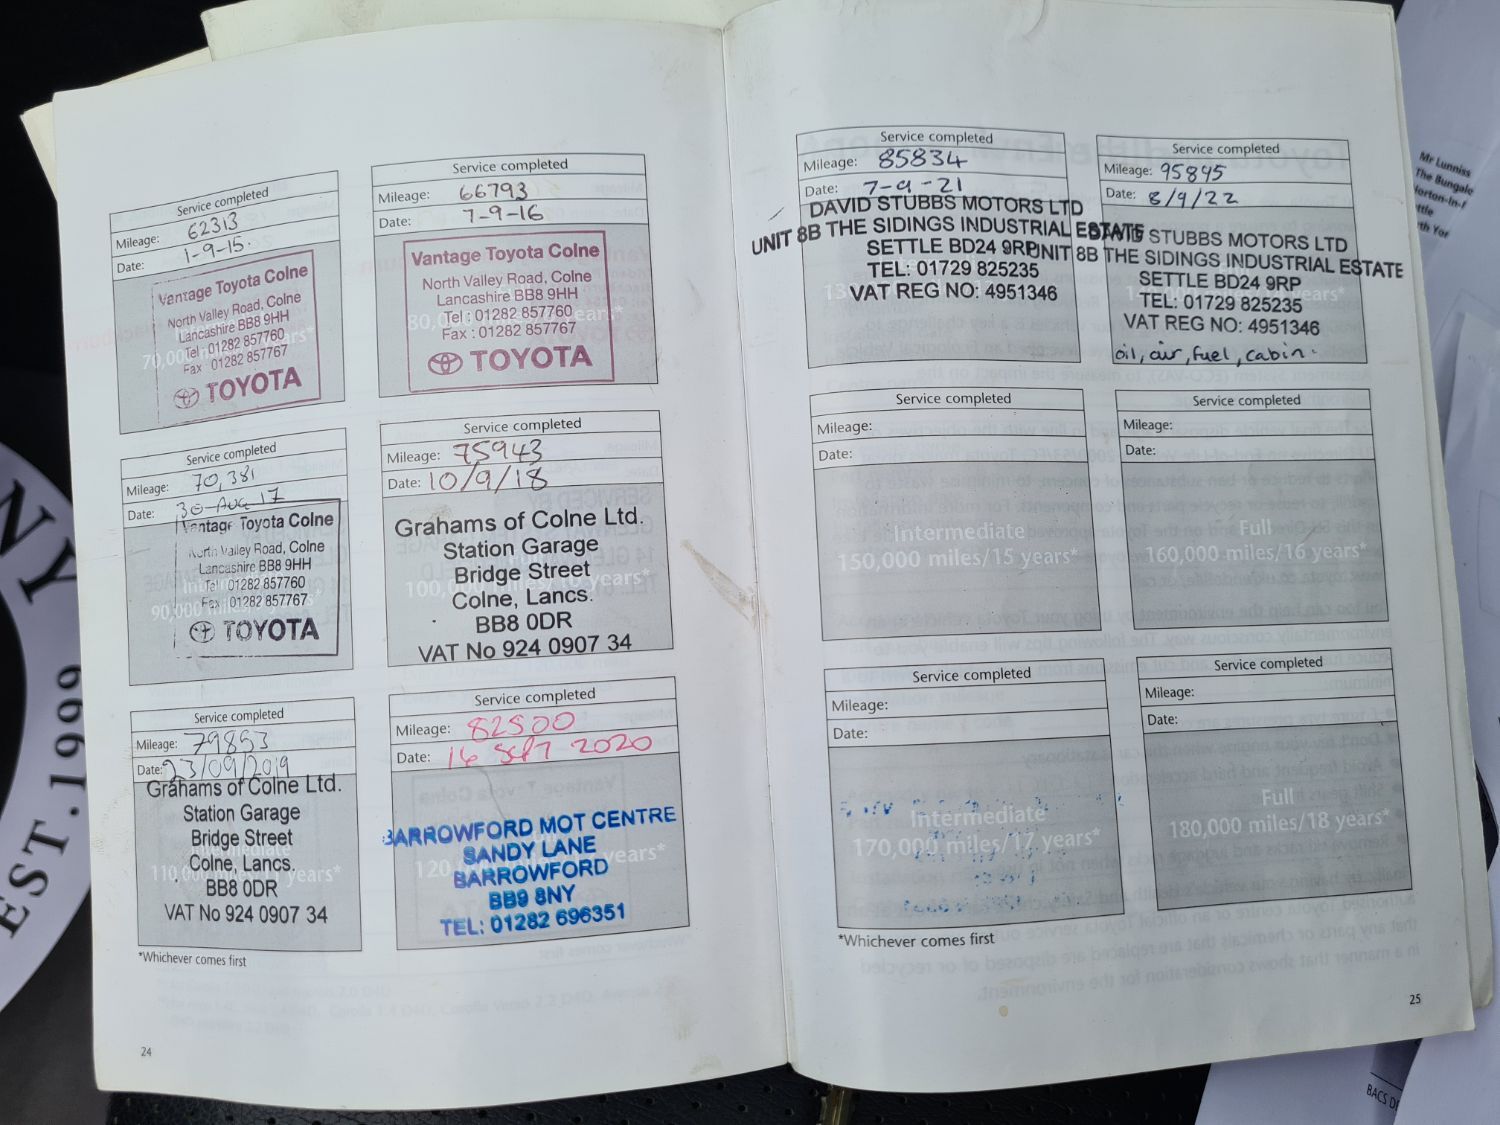 Service completed
Mileage: 62313
Date: 1-9-15.
Vantage Toyota Colne
North Valley Road, Colne
Lancashire BB8 9HH
Tel : 01282 857760
70,000
Fax : 01282 857767
TOYOTA
Service completed
Mileage: 66793
Date: 7-9-16
Vantage Toyota Colne
North Valley Road, Colne
Lancashire BB8 9HH
Tel : 01282 857760
80,000
Fax : 01282 857767
TOYOTA
Service completed
Mileage: 70,381
Date: 30-Aug 17
Vantage Toyota Colne
North Valley Road, Colne
Lancashire BB8 9HH
Tel 01282 857760
Fax 01282 857767
90,000
TOYOTA
Service completed
Mileage: 75943
Date: 10/9/18
Grahams of Colne Ltd.
Station Garage
Bridge Street
100,000 years*
Colne, Lancs.
BB8 0DR
VAT No 924 0907 34
Service completed
Mileage: 79853
Date: 23/09/2019
Grahams of Colne Ltd.
Station Garage
Bridge Street
Colne, Lancs.
110,000 years*
BB8 0DR
VAT No 924 0907 34
Service completed
Mileage: 82500
Date: 16 SEPT 2020
BARROWFORD MOT CENTRE
SANDY LANE
120, years*
BARROWFORD
BB9 8NY
TEL: 01282 696351
*Whichever comes first
24
Service completed
Mileage: 85834
Date: 7-9-21
DAVID STUBBS MOTORS LTD
UNIT 8B THE SIDINGS INDUSTRIAL ESTATE
SETTLE BD24 9RP
TEL: 01729 825235
VAT REG NO: 4951346
Service completed
Mileage: 95845
Date: 8/9/22
DAVID STUBBS MOTORS LTD
UNIT 8B THE SIDINGS INDUSTRIAL ESTATE
SETTLE BD24 9RP
TEL: 01729 825235
years*
VAT REG NO: 4951346
oil, air, fuel, cabin.
Service completed
Mileage:
Date:
Intermediate
150,000 miles/15 years*
Service completed
Mileage:
Date:
Full
160,000 miles/16 years*
Service completed
Mileage:
Date:
Intermediate
170,000 miles/17 years*
Service completed
Mileage:
Date:
Full
180,000 miles/18 years*
*Whichever comes first
25
Mr Lunniss
The Bungal
EST.1999
BACS